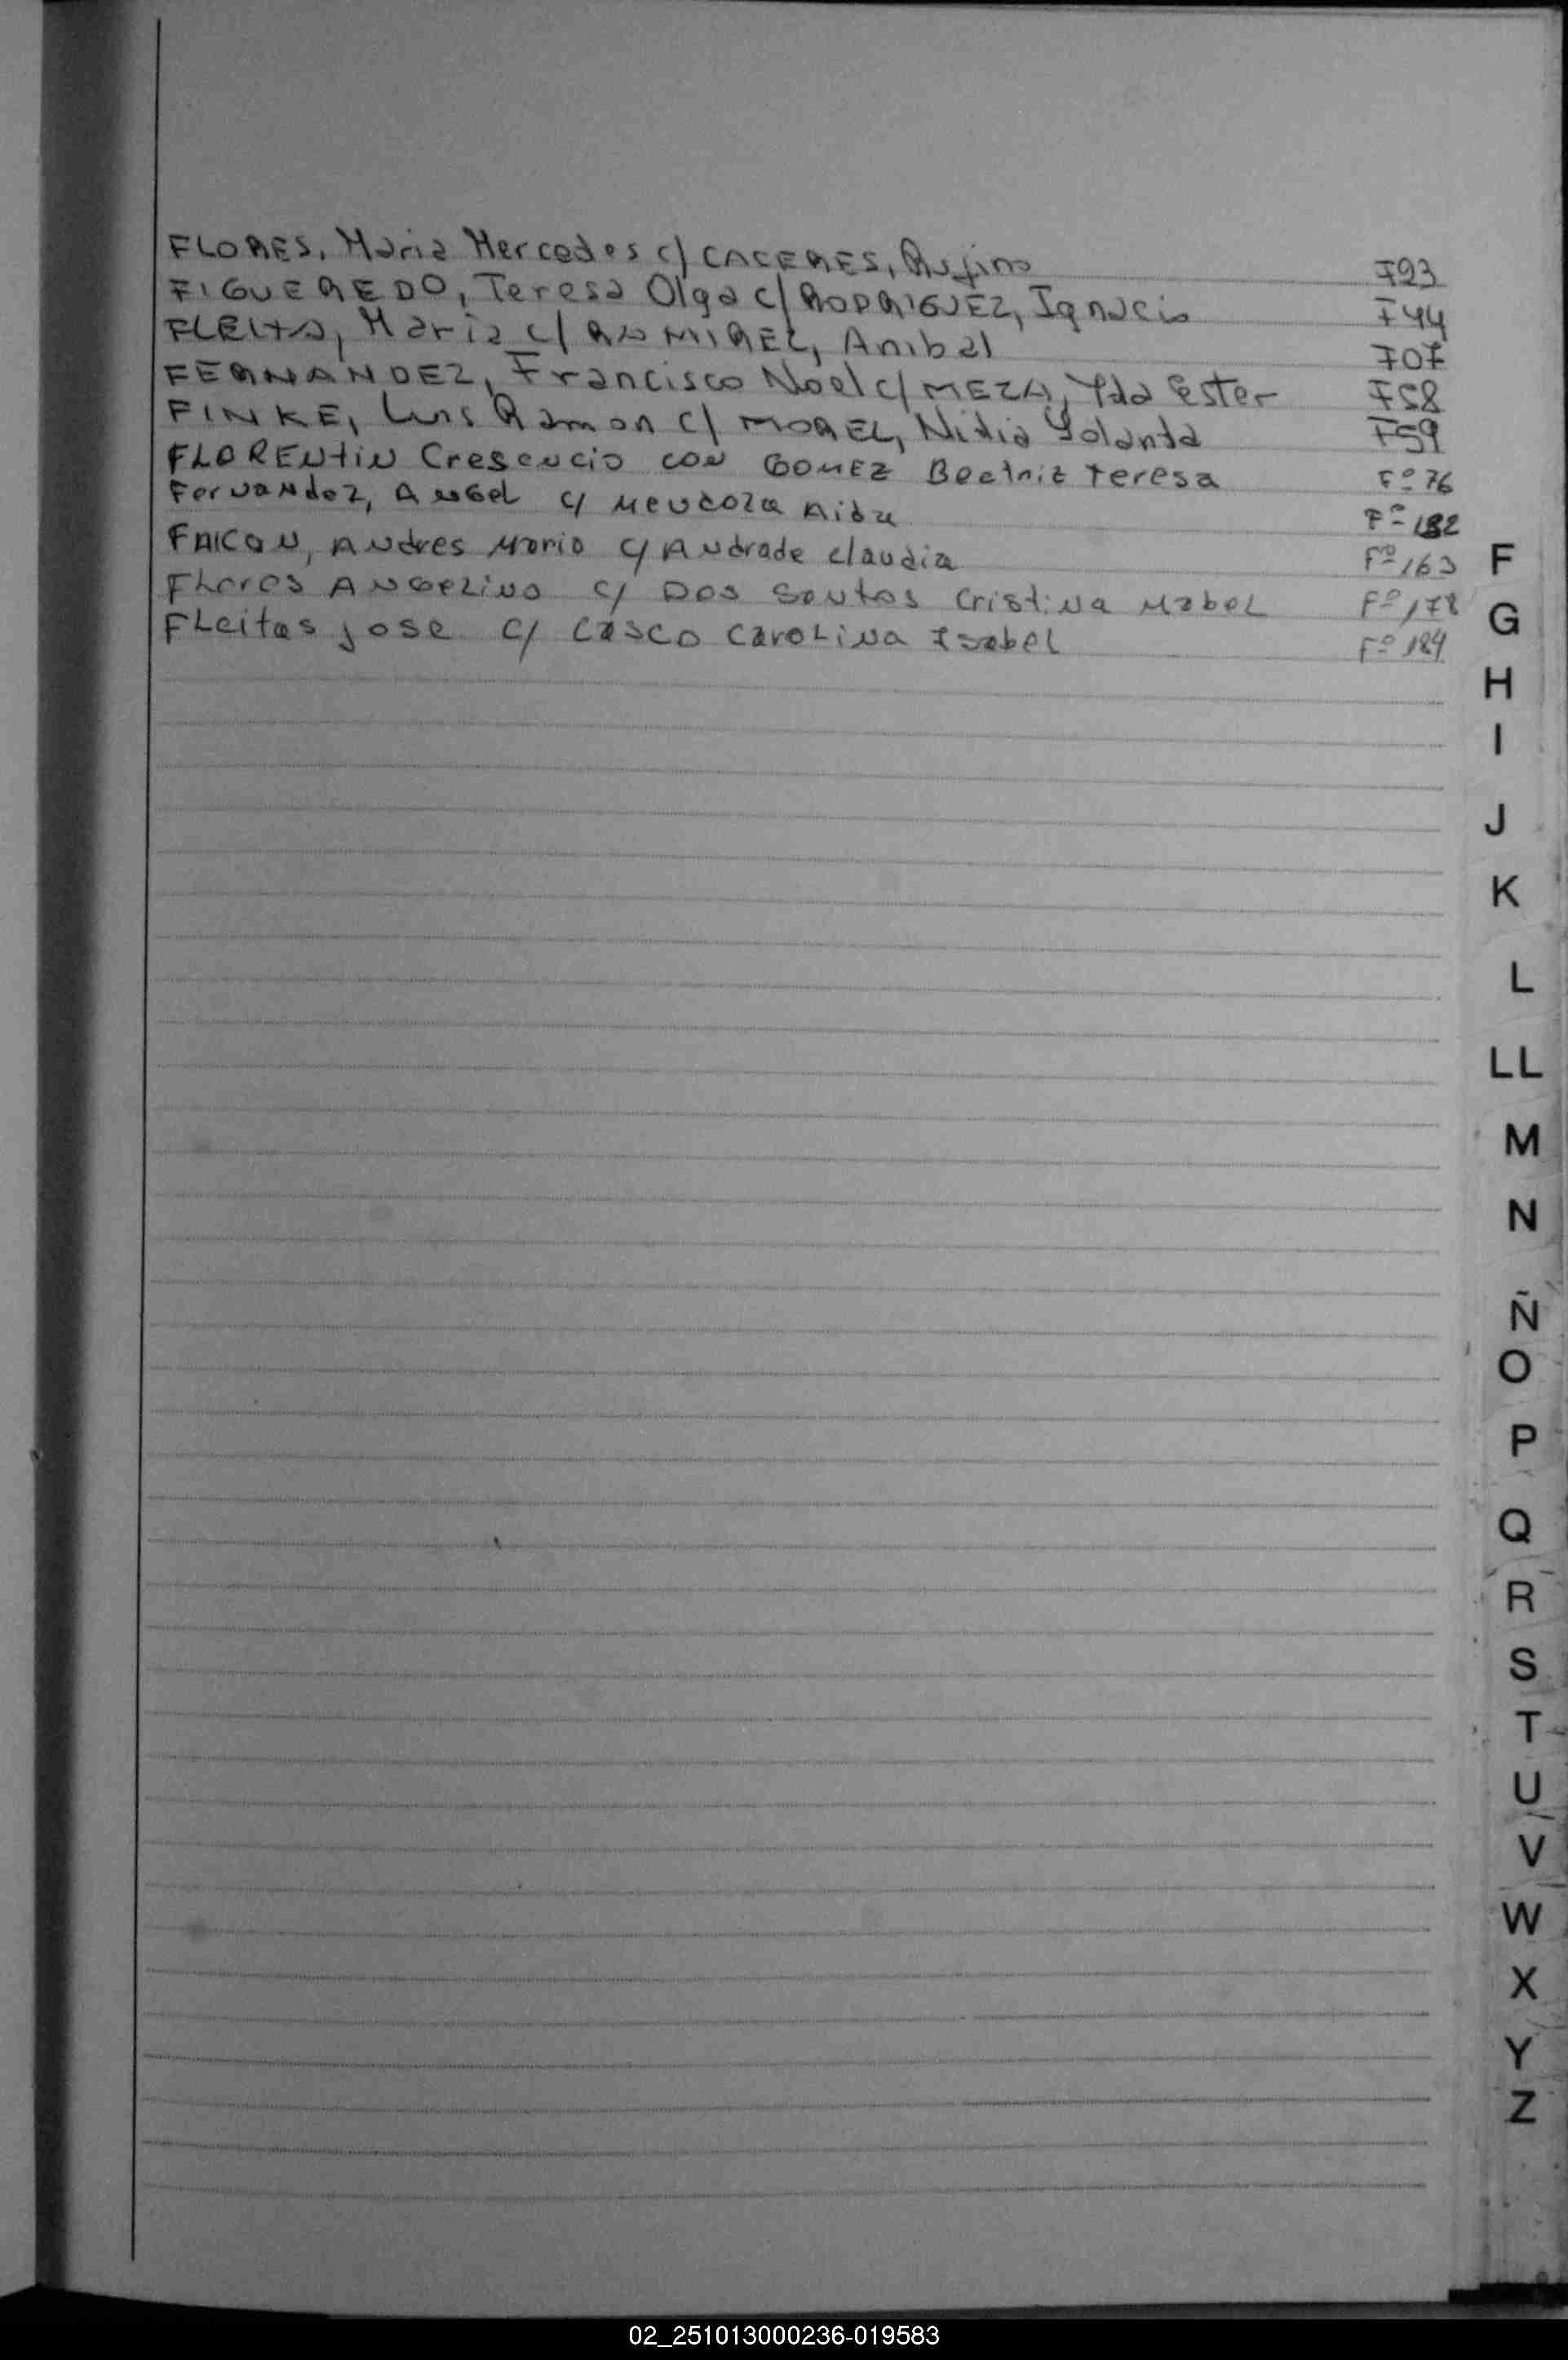 FLORES, Maria Mercedes c/ CACERES, Rufino F23
FIGUEREDO, Teresa Olga c/ RODRIGUEZ, Ignacio F44
FLEITA, Maria c/ RAMIREZ, Anibal F07
FERNANDEZ, Francisco Noel c/ MEZA, Yda Ester F58
FINKE, Luis Ramon c/ MOREL, Nidia Yolanda F59
FLORENtiN Crescencio con GOMEZ Beatriz teresa Fº 76
Fernandez, Angel c/ Mendoza Aida Fº 182
FAICON, Andres Mario c/ Andrade claudia Fº 163
FLores Angelino c/ Dos Santos Cristina MabeL Fº 178
FLeitas jose c/ Casco CaroLina Isabel Fº 184
F
G
H
I
J
K
L
LL
M
N
Ñ
O
P
Q
R
S
T
U
V
W
X
Y
Z
02_251013000236-019583